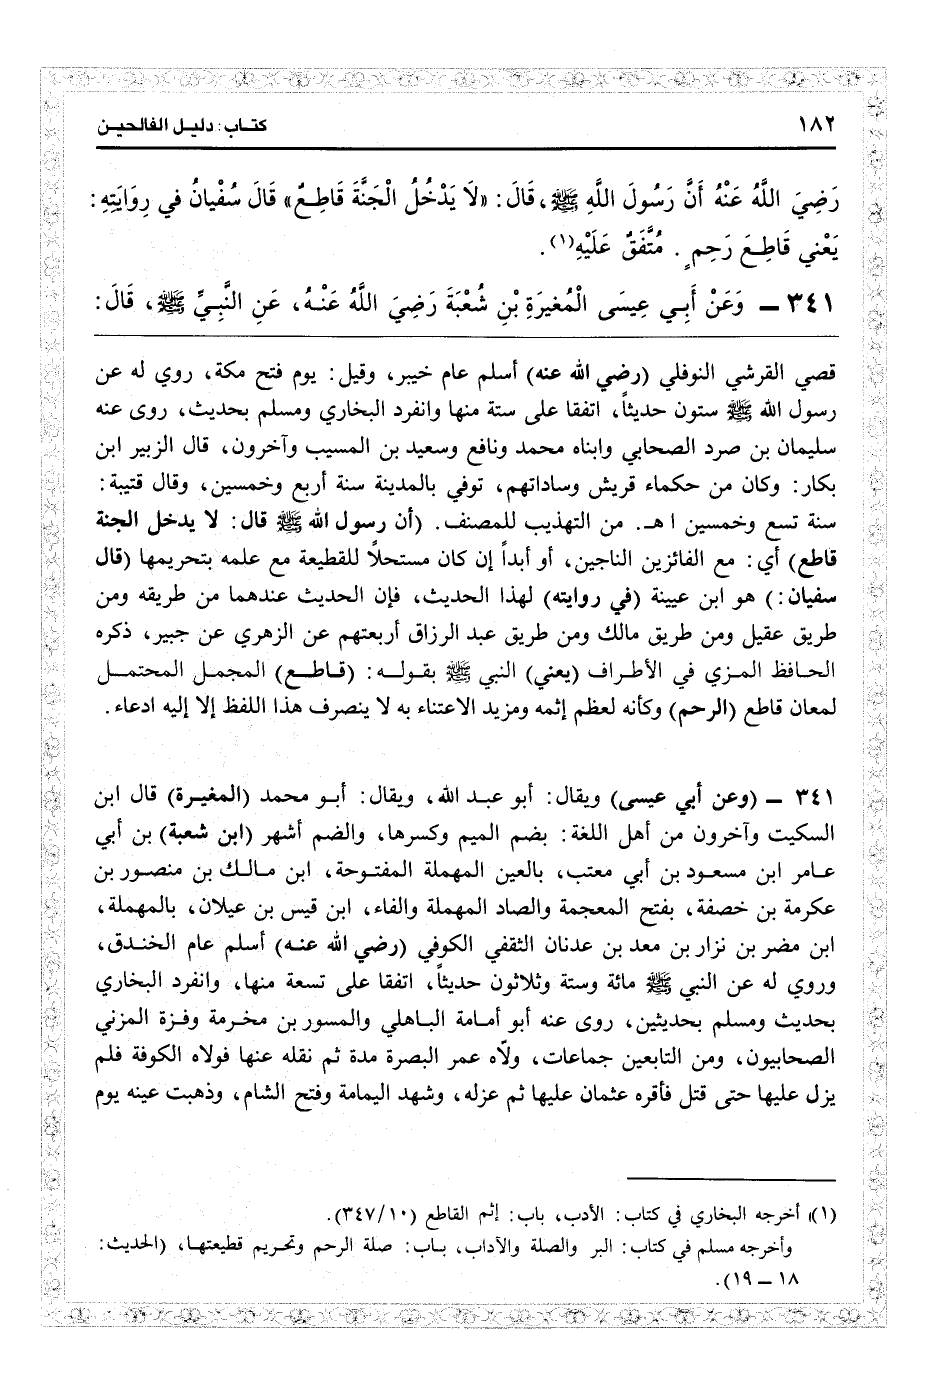 ١٨٢ كتاب: دليل الفالحين
رَضِيَ اللَّهُ عَنْهُ أَنَّ رَسُولَ اللَّهِ ﷺ، قَالَ: «لَا يَدْخُلُ الْجَنَّةَ قَاطِعٌ» قَالَ سُفْيانُ في رِوَايَتِهِ:
يَعْني قَاطِعَ رَحِمٍ. مُتَّفَقٌ عَلَيْهِ(١).
٣٤١ ــ وَعَنْ أَبِي عِيسَى الْمُغيرَةِ بْنِ شُعْبَةَ رَضِيَ اللَّهُ عَنْهُ، عَنِ النَّبِيِّ ﷺ، قَالَ:
قصي القرشي النوفلي (رضي الله عنه) أسلم عام خيبر، وقيل: يوم فتح مكة، روي له عن
رسول الله ﷺ ستون حديثاً، اتفقا على ستة منها وانفرد البخاري ومسلم بحديث، روى عنه
سليمان بن صرد الصحابي وابناه محمد ونافع وسعيد بن المسيب وآخرون، قال الزبير ابن
بكار: وكان من حكماء قريش وساداتهم، توفي بالمدينة سنة أربع وخمسين، وقال قتيبة:
سنة تسع وخمسين ا هـ. من التهذيب للمصنف. (أن رسول الله ﷺ قال: لا يدخل الجنة
قاطع) أي: مع الفائزين الناجين، أو أبداً إن كان مستحلاً للقطيعة مع علمه بتحريمها (قال
سفيان:) هو ابن عيينة (في روايته) لهذا الحديث، فإن الحديث عندهما من طريقه ومن
طريق عقيل ومن طريق مالك ومن طريق عبد الرزاق أربعتهم عن الزهري عن جبير، ذكره
الحافظ المزي في الأطراف (يعني) النبي ﷺ بقوله: (قاطع) المجمل المحتمل
لمعان قاطع (الرحم) وكأنه لعظم إثمه ومزيد الاعتناء به لا ينصرف هذا اللفظ إلا إليه ادعاء.
٣٤١ ــ (وعن أبي عيسى) ويقال: أبو عبد الله، ويقال: أبو محمد (المغيرة) قال ابن
السكيت وآخرون من أهل اللغة: بضم الميم وكسرها، والضم أشهر (ابن شعبة) بن أبي
عامر ابن مسعود بن أبي معتب، بالعين المهملة المفتوحة، ابن مالك بن منصور بن
عكرمة بن خصفة، بفتح المعجمة والصاد المهملة والفاء، ابن قيس بن عيلان، بالمهملة،
ابن مضر بن نزار بن معد بن عدنان الثقفي الكوفي (رضي الله عنه) أسلم عام الخندق،
وروي له عن النبي ﷺ مائة وستة وثلاثون حديثاً، اتفقا على تسعة منها، وانفرد البخاري
بحديث ومسلم بحديثين، روى عنه أبو أمامة الباهلي والمسور بن مخرمة وقزة المزني
الصحابيون، ومن التابعين جماعات، ولاّه عمر البصرة مدة ثم نقله عنها فولاه الكوفة فلم
يزل عليها حتى قتل فأقره عثمان عليها ثم عزله، وشهد اليمامة وفتح الشام، وذهبت عينه يوم
(١) أخرجه البخاري في كتاب: الأدب، باب: إثم القاطع (٣٤٧/١٠).
وأخرجه مسلم في كتاب: البر والصلة والآداب، باب: صلة الرحم وتحريم قطيعتها، (الحديث:
١٨ ــ ١٩).